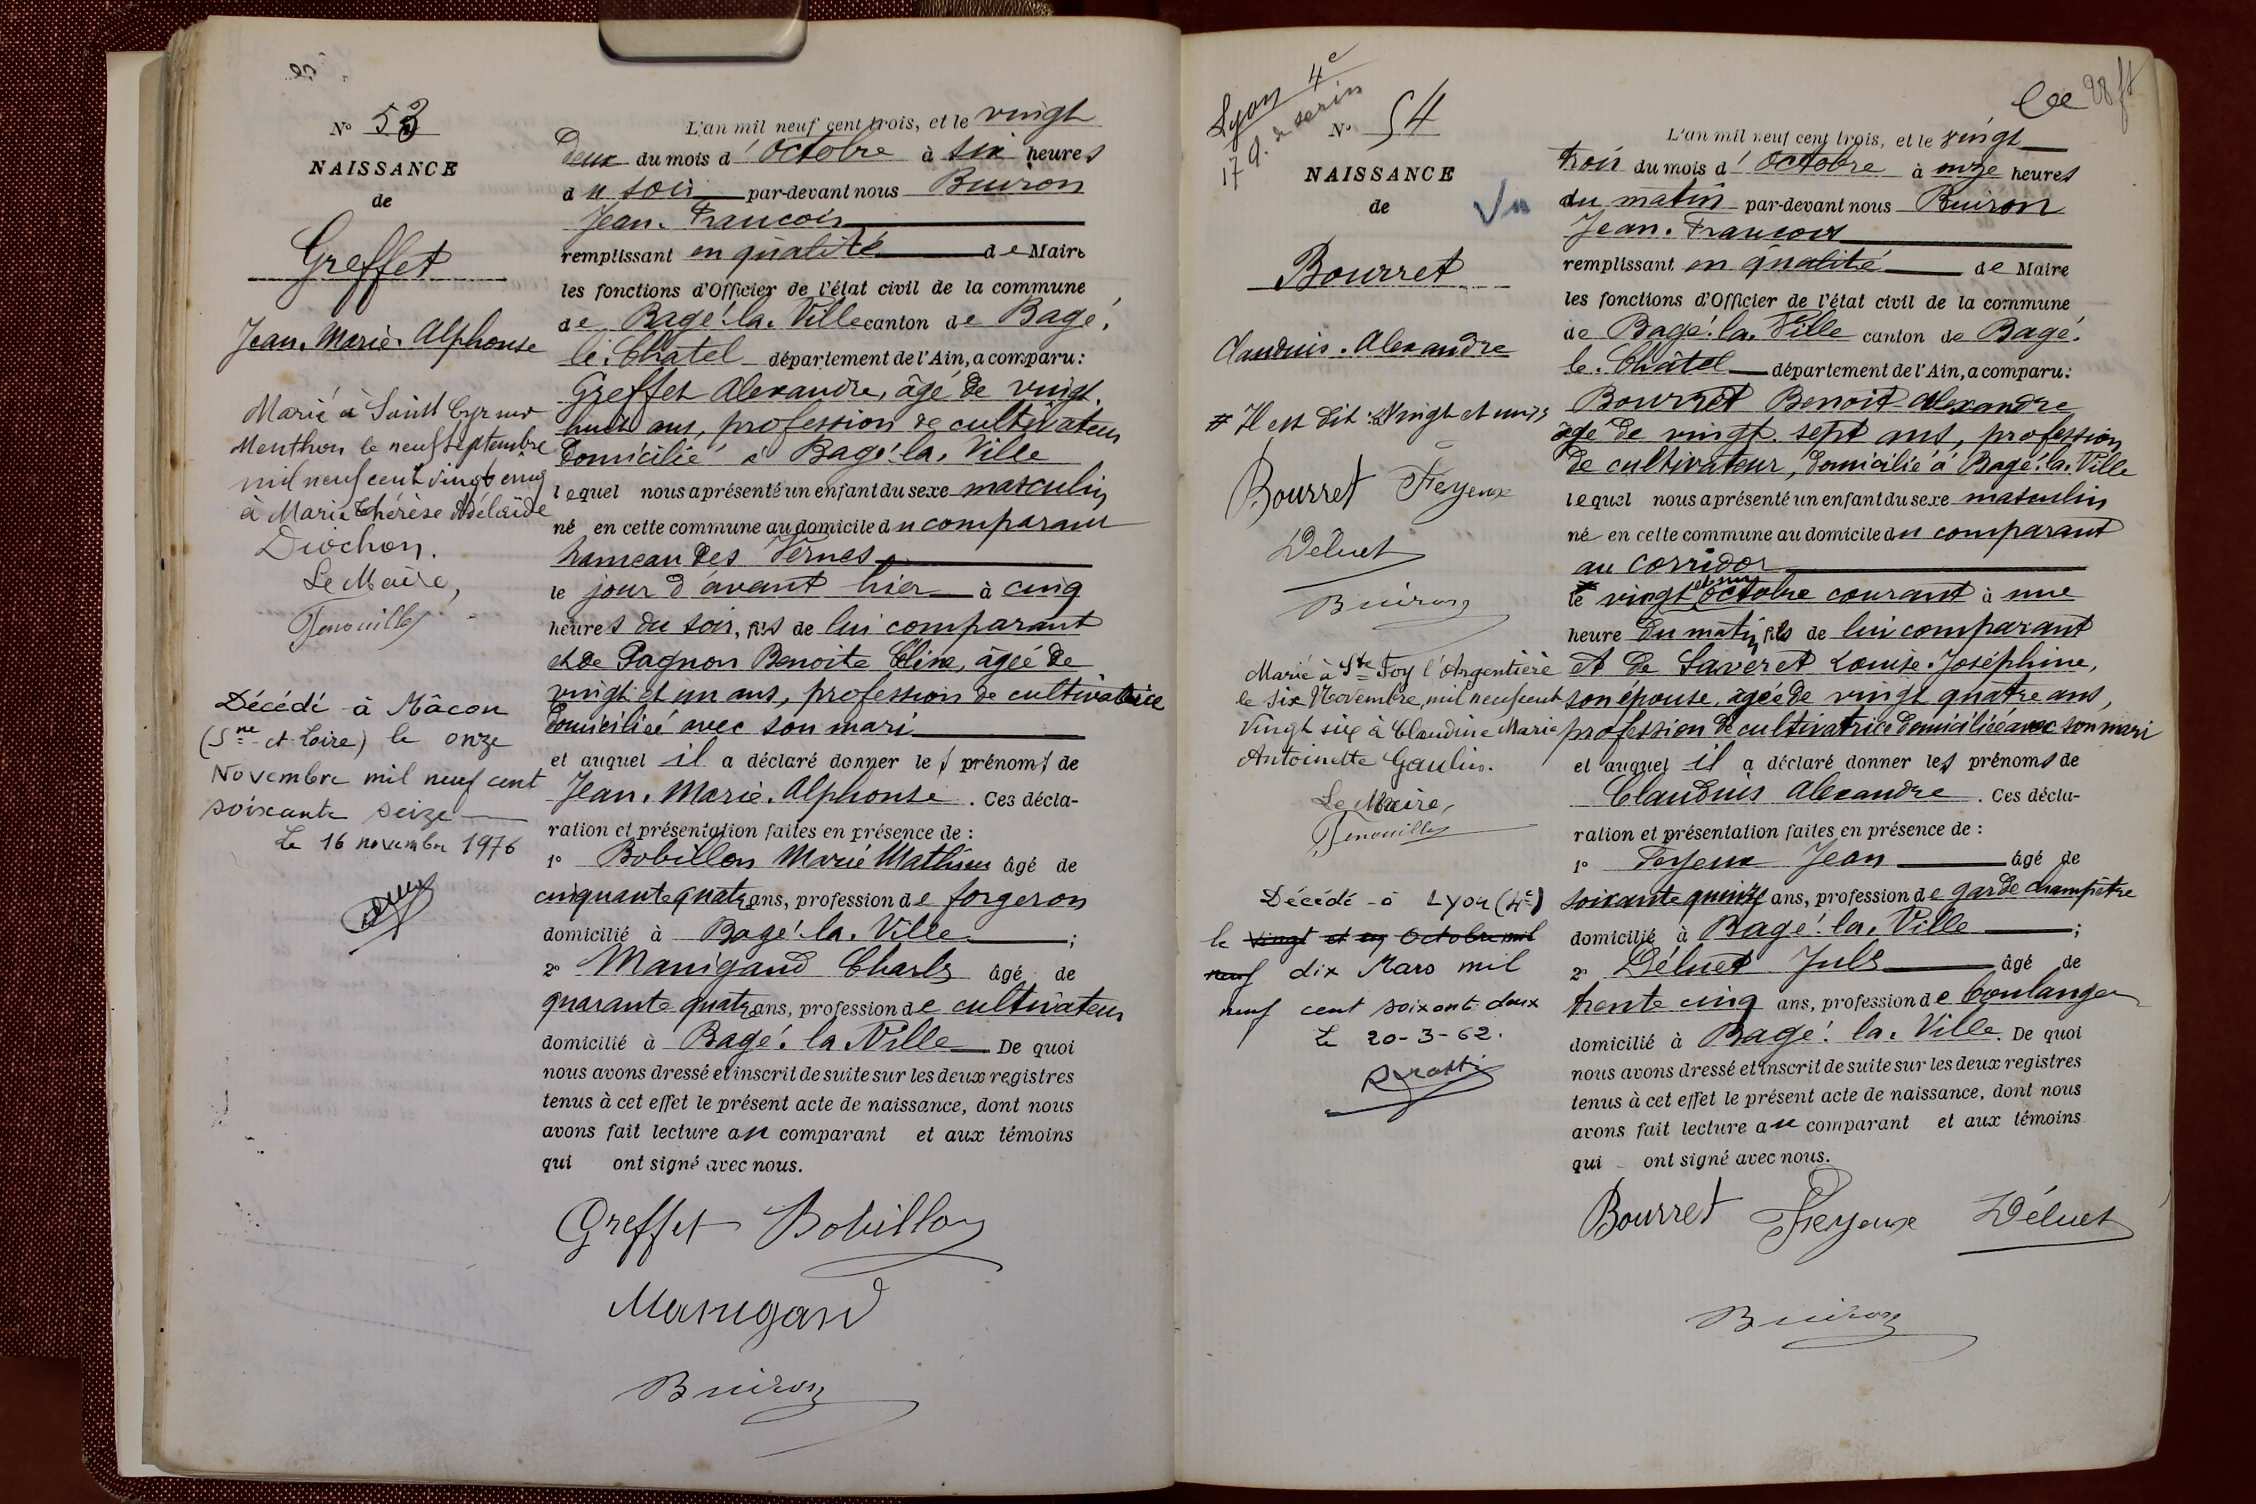 N° 53
NAISSANCE
de
Greffet
Jean. Marie. Alphonse
Marié à Saint Cyr sur
Menthon le neuf septembre
mil neuf cent vingt cinq
à Marie Thérèse Adélaïde
Drochon.
Le Maire,
Décédé à Mâcon
(Sne et Loire) le onze
Novembre mil neuf cent
soixante seize
Le 16 novembre 1976
L'an mil neuf cent trois, et le vingt
deux du mois d'Octobre à six heures
du soir par-devant nous Buiron
Jean. Francois
remplissant en qualité de Maire
les fonctions d'Officier de l'état civil de la commune
de Bagé. la. Ville canton de Bagé.
le. Chatel département de l'Ain, a comparu:
Greffet Alexandre, âgé de vingt.
huit ans, profession de cultivateur
domicilié à Bagé. la. Ville
lequel nous a présenté un enfant du sexe masculin
né en cette commune au domicile du comparant
hameau des Vernes
le jour d'avant hier à cinq
heures du soir, fils de lui comparant
et de Pagnon Benoite Céline, âgée de
vingt et un ans, profession de cultivatrice
domiciliée avec son mari
et auquel il a déclaré donner les prénoms de
Jean. Marie. Alphonse. Ces décla-
ration et présentation faites en présence de:
1° Bobillon Marie Mathieu âgé de
cinquante quatre ans, profession de forgeron
domicilié à Bagé. la. Ville;
2° Manigand Charles âgé de
quarante quatre ans, profession de cultivateur
domicilié à Bagé. la. Ville De quoi
nous avons dressé et inscrit de suite sur les deux registres
tenus à cet effet le présent acte de naissance, dont nous
avons fait lecture au comparant et aux témoins
qui ont signé avec nous.
Greffet Bobillon
Manigand
Buiron
Lyon 4e
N° 54
NAISSANCE
de
Vu
Bourret
Claudius. Alexandre
# Il est dit: Vingt et un
Bourret Feyeux
Déluet
Buiron
Marié à Ste Foy l'Argentière
le six Novembre, mil neuf cent
Vingt six à Claudine Marie
Antoinette Gaulin.
Le Maire,
Décédé à Lyon (4e)
le vingt et un Octobre mil
neuf dix Mars mil
neuf cent soixante deux
Le 20-3-62.
28 ft
L'an mil neuf cent trois, et le vingt
trois du mois d'Octobre à onze heures
du matin par-devant nous Buiron
Jean. Francois
remplissant en qualité de Maire
les fonctions d'Officier de l'état civil de la commune
de Bagé. la. Ville canton de Bagé.
le. Châtel département de l'Ain, a comparu:
Bourret Benoit-Alexandre
âgé de vingt. sept ans, profession
de cultivateur, domicilié à Bagé. la. Ville
lequel nous a présenté un enfant du sexe masculin
né en cette commune au domicile du comparant
au corridor
# le vingt et un Octobre courant à une
heure du matin fils de lui comparant
et de Saveret Louise. Joséphine,
son épouse, âgée de vingt quatre ans,
profession de cultivatrice domiciliée avec son mari
et auquel il a déclaré donner les prénoms de
Claudius Alexandre. Ces décla-
ration et présentation faites en présence de:
1° Feyeux Jean âgé de
soixante quinze ans, profession de garde champêtre
domicilié à Bagé. la. Ville;
2° Déluet Jules âgé de
trente cinq ans, profession de boulanger
domicilié à Bagé. la. Ville. De quoi
nous avons dressé et inscrit de suite sur les deux registres
tenus à cet effet le présent acte de naissance, dont nous
avons fait lecture au comparant et aux témoins
qui ont signé avec nous.
Bourret Feyeux Déluet
Buiron